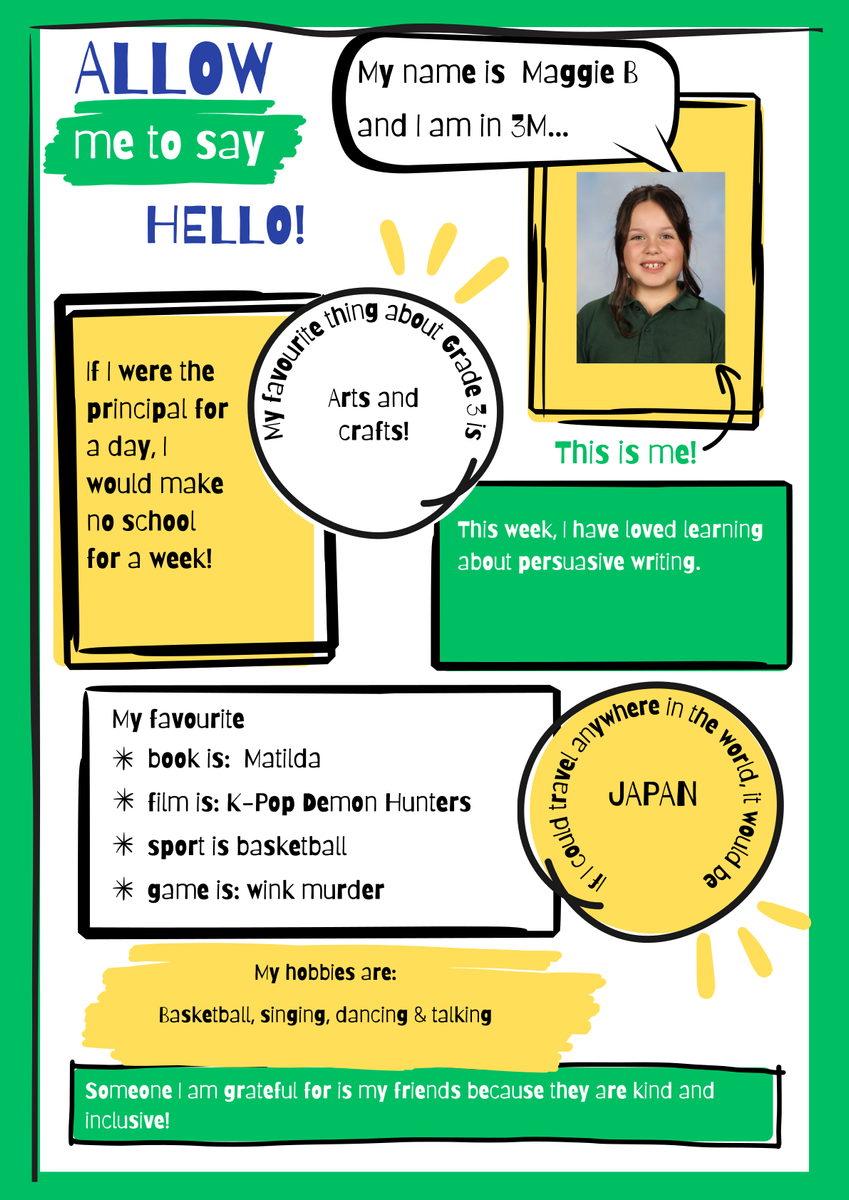 ALLOW
me to say
HELLO!
My name is Maggie B
and I am in 3M...
This is me!
If I were the
principal for
a day, I
would make
no school
for a week!
My favourite thing about Grade 3 is
Arts and
crafts!
This week, I have loved learning
about persuasive writing.
My favourite
book is: Matilda
film is: K-Pop Demon Hunters
sport is basketball
game is: wink murder
If I could travel anywhere in the world, it would be
JAPAN
My hobbies are:
Basketball, singing, dancing & talking
Someone I am grateful for is my friends because they are kind and
inclusive!